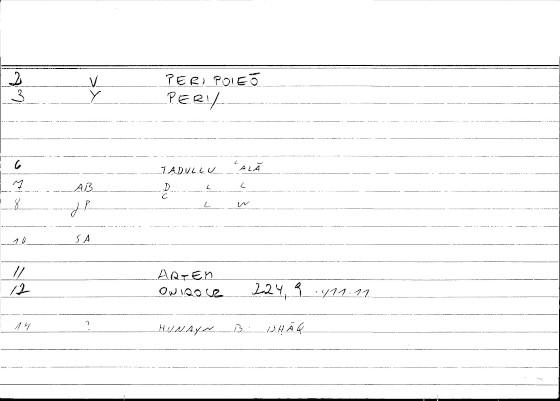 2 V PERI POIEŌ
3 Y PERI/
6 TADULLU ʿALĀ
7 AB D L L
8 JP C L W
10 SA
11 ARTEM
12 ONIROCR 224,9 · 411.11
14 ? HUNAYN B. ISHĀQ